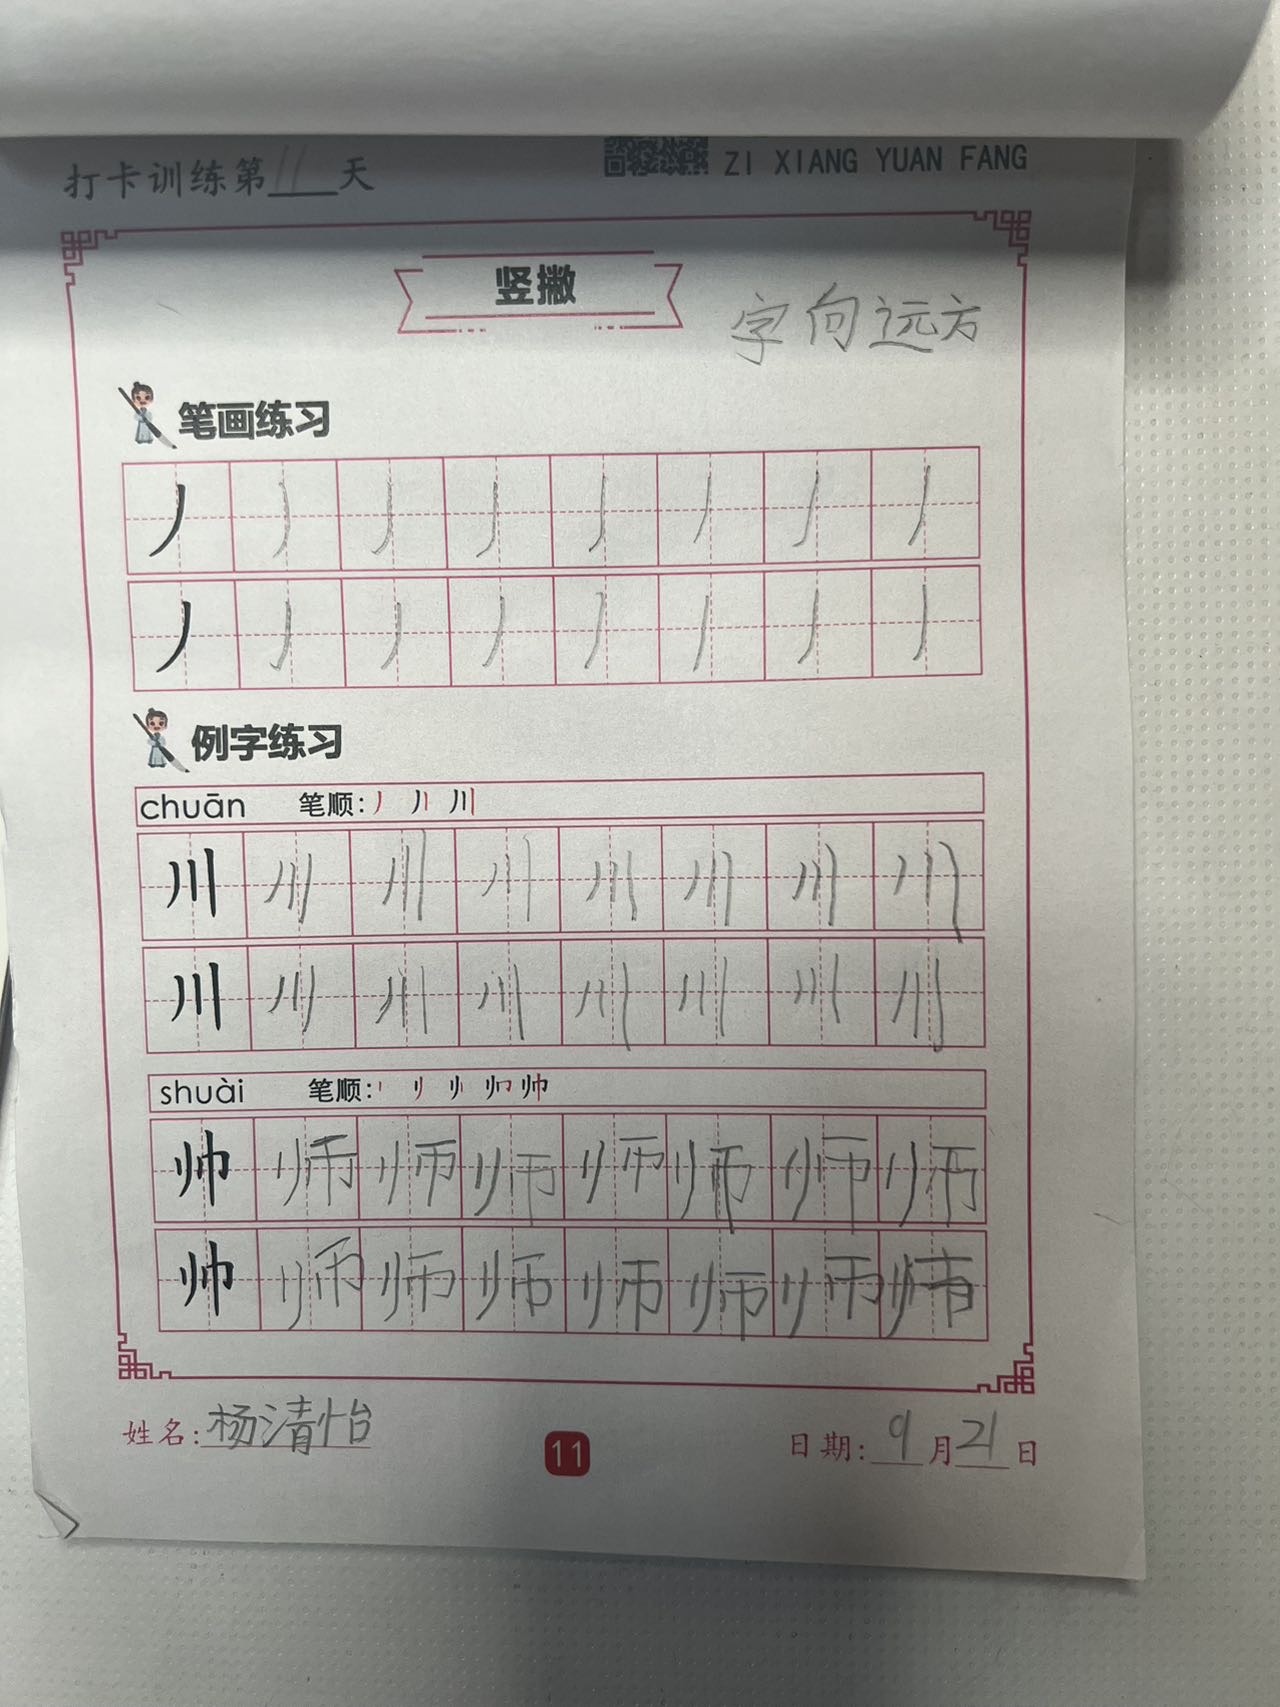 打卡训练第11天
ZI XIANG YUAN FANG
竖撇
字向远方
笔画练习
丿 丿 丿 丿 丿 丿 丿 丿
丿 丿 丿 丿 丿 丿 丿 丿
例字练习
chuān 笔顺: 丿 丿丨 川
川 川 川 川 川 川 川 川
川 川 川 川 川 川 川 川
shuài 笔顺: 丨 刂 帅
帅 师 师 师 师 师 师 师
帅 师 师 师 师 师 师
姓名: 杨清怡
11
日期: 9月21日